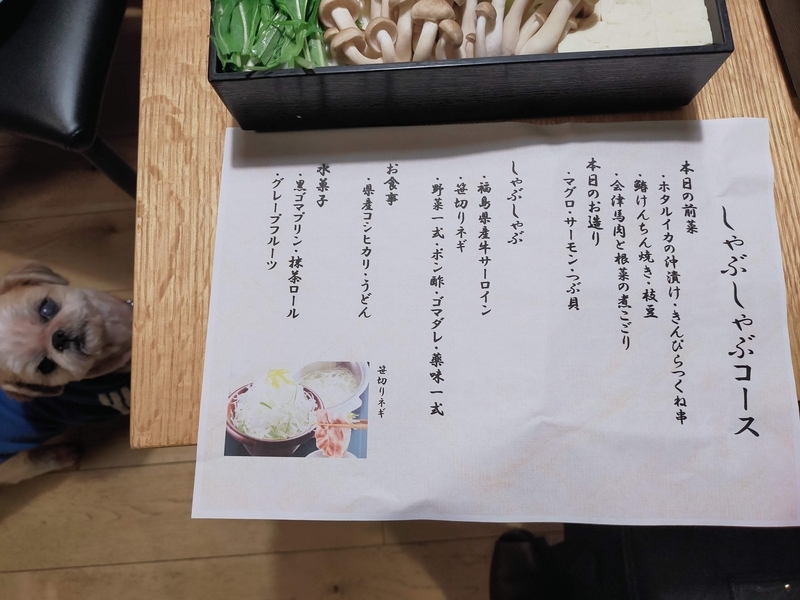 しゃぶしゃぶコース
本日の前菜
・ホタルイカの沖漬け・きんぴらつくね串
・鰆けんちん焼き・枝豆
・会津馬肉と根菜の煮こごり
本日のお造り
・マグロ・サーモン・つぶ貝
しゃぶしゃぶ
・福島県産牛サーロイン
・笹切りネギ
・野菜一式・ポン酢・ゴマダレ・薬味一式
お食事
・県産コシヒカリ・うどん
水菓子
・黒ゴマプリン・抹茶ロール
・グレープフルーツ
笹切りネギ